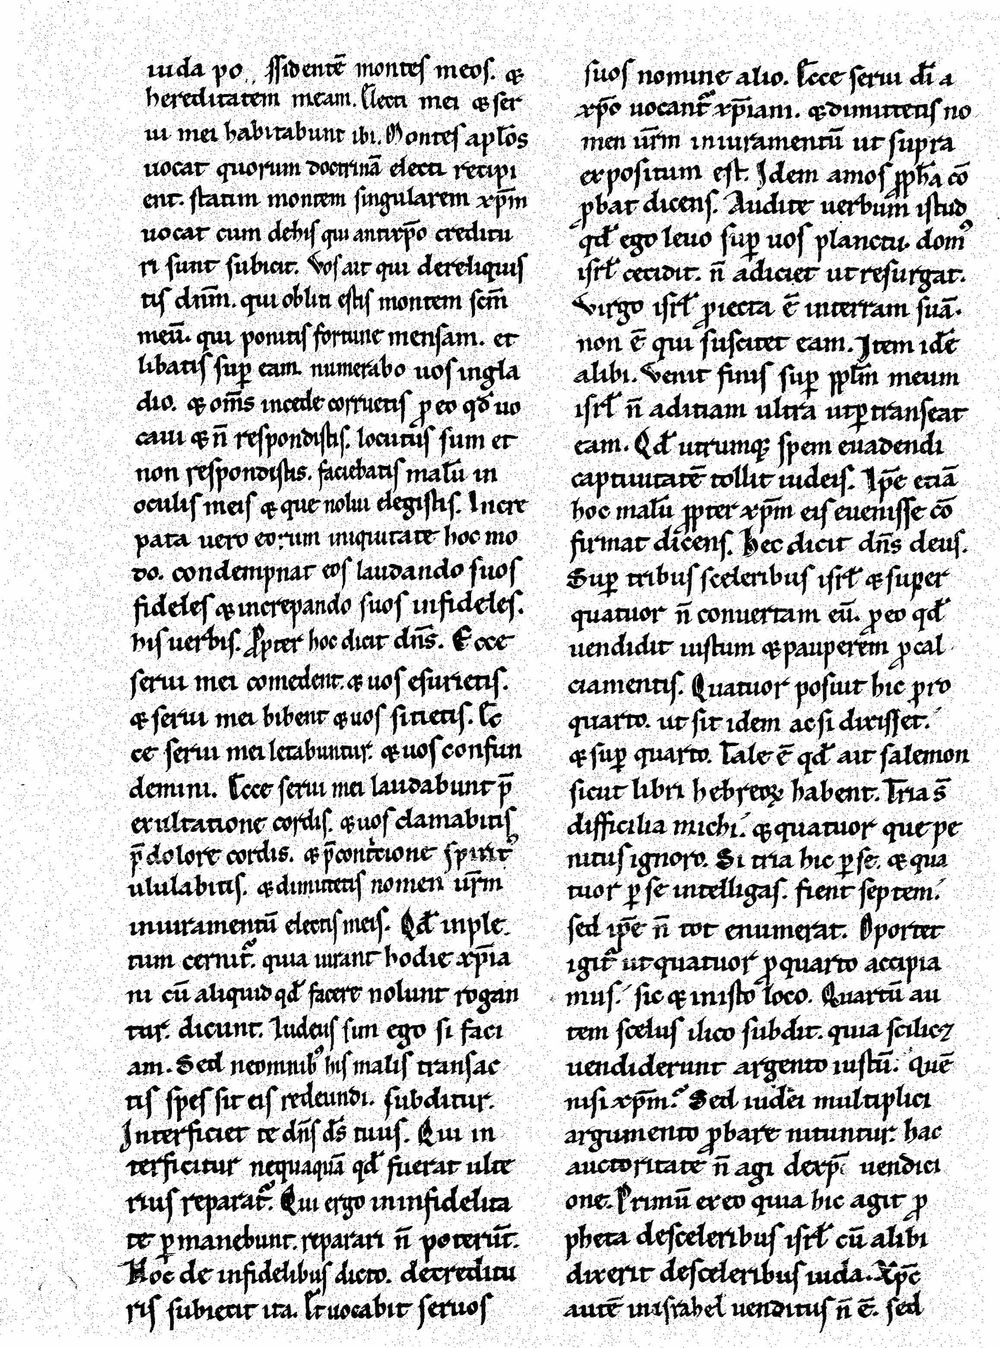 iuda po ssidentē montes meos. &
hereditatem meam. Electi mei & ser
ui mei habitabunt ibi. Montes apl̄os
uocat quorum doctrinā electi recipi
ent. statim montem singularem xp̄m
uocat cum de his qui antixp̄o creditu
ri sunt subicit. Vos ait qui dereliquis
tis dn̄m. qui obliti estis montem scm̄
meū. qui ponitis fortune mensam. et
libatis sup̄ eam. numerabo uos in gla
dio. & om̄s in cede corruetis p̱ eo qđ uo
caui & n̄ respondistis. locutus sum et
non respondistis. faciebatis malū in
oculis meis & que nolui elegistis. Incre
pata uero eorum iniquitate hoc mo
do. condempnat eos laudando suos
fideles & increpando suos infideles.
his uerbis. Propter hoc dicit dn̄s. Ecce
serui mei comedent. & uos esurietis.
& serui mei bibent & uos sitietis. Ec
ce serui mei letabuntur. & uos confun
demini. Ecce serui mei laudabunt p̄
exultatione cordis. & uos clamabitis
p̄ dolore cordis. & p̄ contcione spirit᾽
ululabitis. & dimittetis nomen ur̄m
in iuramentū electis meis. Qđ inple
tum cernit᷑. quia uirant hodie xp̄ia
ni cū aliquid qđ facere nolunt rogan
tur. dicunt. Iudeus sim ego si faci
am. Sed ne omnib᾽ his malis transac
tis spes sit eis redeundi. subditur.
Interficiet te dn̄s ds̄ tuus. Qui in
terficitur nequaquā qđ fuerat ulte
rius reparat᷑. Qui ergo in infidelita
te p̱manebunt. reparari n̄ poterūt.
Hoc de infidelibus dicto. de creditu
ris subiecit ita. Et uocabit seruos
suos nomine alio. Ecce serui di̅ a
xp̄o uocant᷑ xp̄iani. & dimittetis no
men ur̄m in iuramentū ut supra
expositum est. Idem amos pp̱ha cō
p̱bat dicens. Audite uerbum istud
qđ ego leuo sup̄ uos planctū. dom᾽
isrl̄ cecidit. n̄ adiciet ut resurgat.
Virgo isrl̄ p̱iecta ē in terram suā.
non ē qui suscitet eam. Item idē
alibi. Venit finis sup̄ ppl̄m meum
isrl̄ n̄ aditiam ultra ut p̱transeat
eam. Qđ utrumq; spem euadendi
captiuitatē tollit iudeis. Ip̄e etiā
hoc malū pp̱ter xp̄m eis euenisse cō
firmat dicens. Hec dicit dn̄s deus.
Sup̄ tribus sceleribus isrl̄ & super
quatuor n̄ conuertam eū. p̱ eo qđ
uendidit iustum & pauperem p̱ cal
ciamentis. Quatuor posuit hic pro
quarto. ut sit idem ac si dixisset.
& sup̄ quarto. Tale ē qđ ait salemon
sicut libri hebreoꝝ habent. Tria s̄
difficilia michi. & quatuor que pe
nitus ignoro. Si tria hic p̱ se. & qua
tuor p̱ se intelligas. fient septem.
sed ip̄e n̄ tot enumerat. Oportet
igit᷑ ut quatuor p̱ quarto accipia
mus. sic & in isto loco. Quartū au
tem scelus ilico subdit. quia scilicꝫ
uendiderunt argento iustū. Quē
nisi xp̄m? Sed iudei multiplici
argumento p̱bare nituntur. hac
auctoritate n̄ agi de xp̄i uendici
one. Primū ex eo quia hic agit p̱
pheta de sceleribus isrl̄ cū alibi
dixerit de sceleribus iuda. Xp̄c
autē in israhel uenditus n̄ ē. sed